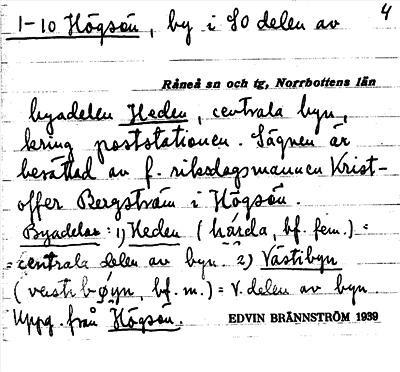 4
1-10 Högsön, by i SO delen av
Råneå sn och tg, Norrbottens län
byadelen Heden, centrala byn,
kring poststationen. Sägnen är
berättad av f. riksdagsmannen Krist-
offer Bergström i Högsön.
Byadelar: 1) Heden (hárda, bf. fem.) =
= centrala delen av byn. 2) Västibyn
(västibøyn, bf. m.) = V. delen av byn
Uppg. från Högsön.
EDVIN BRÄNNSTRÖM 1939